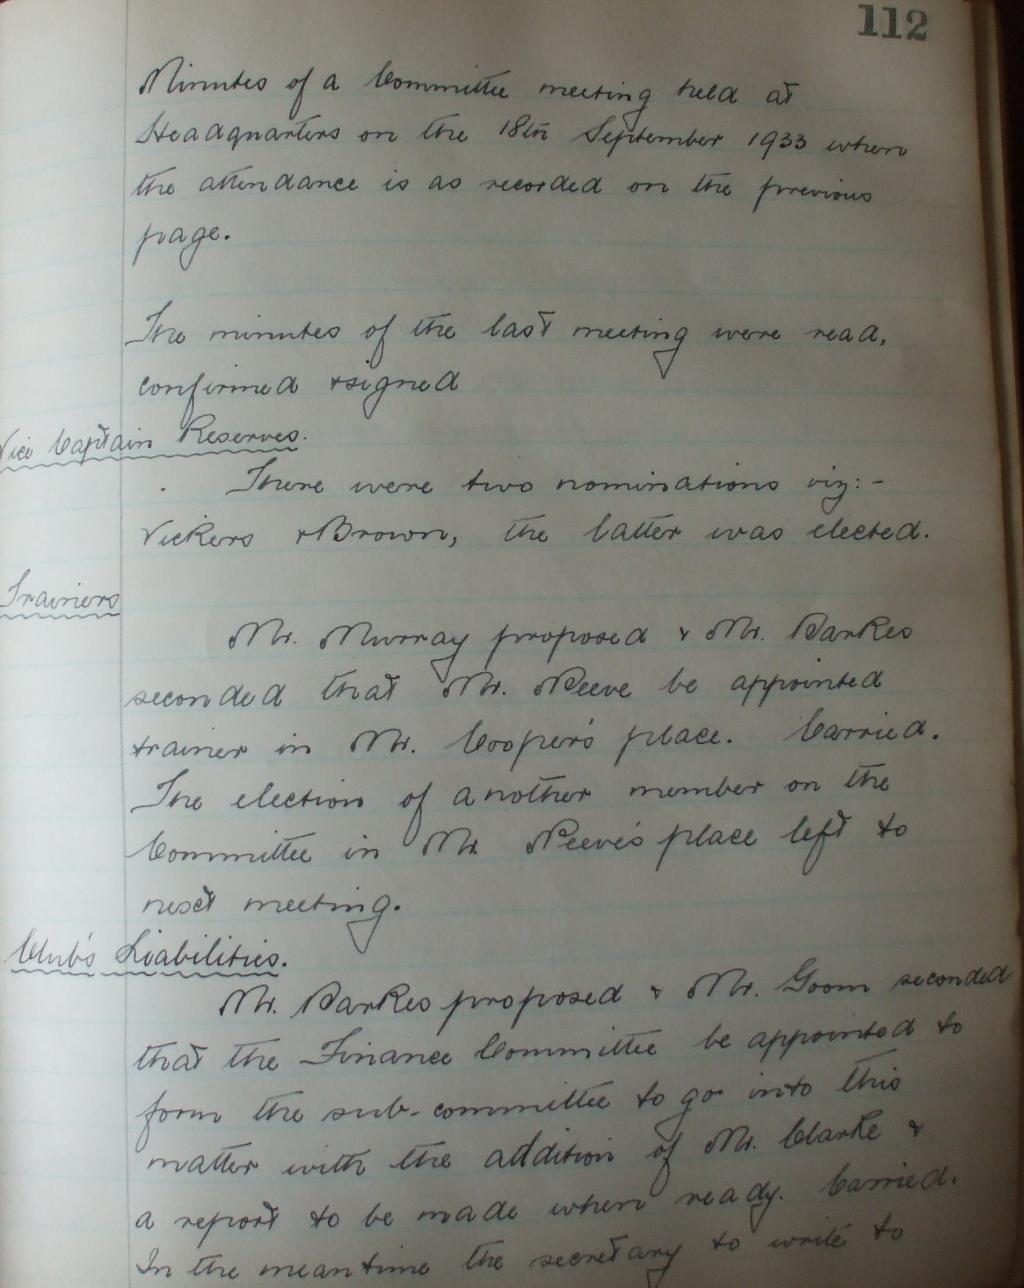 112
Minutes of a Committee meeting held at
Headquarters on the 18th September 1933 when
the attendance is as recorded on the previous
page.
The minutes of the last meeting were read,
confirmed & signed
Vice Captain Reserves.
There were two nominations viz:-
Vickers & Brown, the latter was elected.
Trainers
Mr. Murray proposed & Mr. Parkes
seconded that Mr. Reeve be appointed
trainer in Mr. Cooper's place. Carried.
The election of another member on the
Committee in Mr. Reeve's place left to
next meeting.
Club's Liabilities.
Mr. Parkes proposed & Mr. Goom seconded
that the Finance Committee be appointed to
form the sub-committee to go into this
matter with the addition of Mr. Clarke &
a report to be made when ready. Carried.
In the meantime the secretary to write to